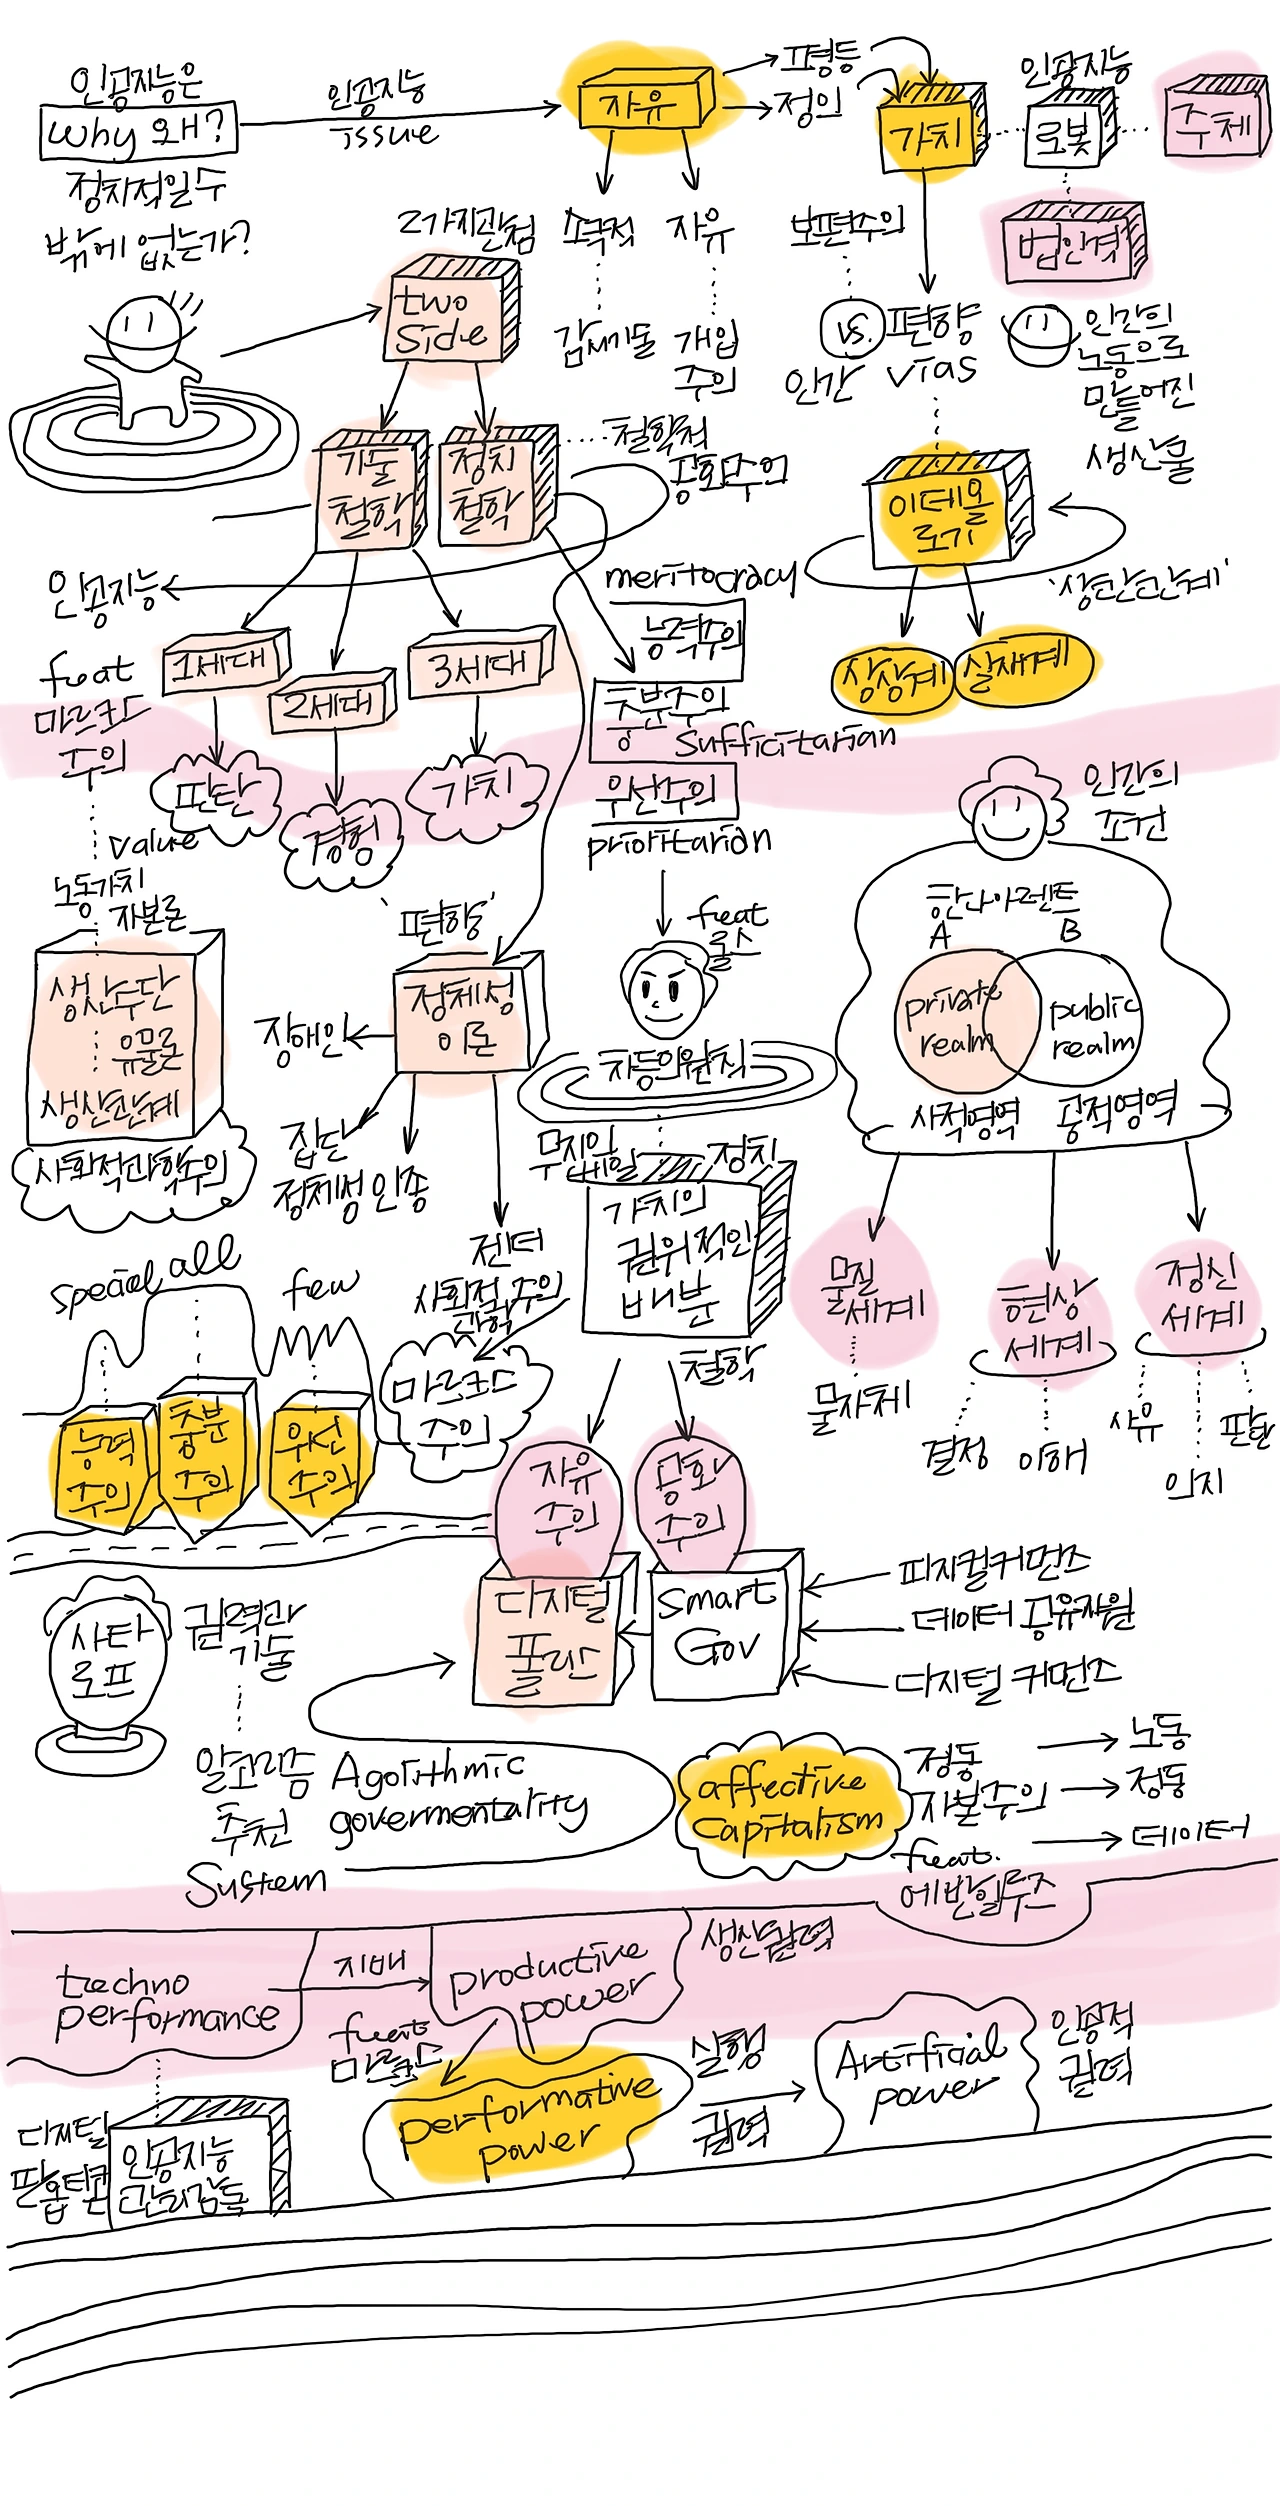 인공지능은
Why 왜?
정치적일수
밖에 없는가?
인공지능
issue
자유
평등
정의
가치
인공지능
로봇
주체
법인격
인간의
노동으로
만들어진
생산물
2가지관점
two
side
소극적
자유
감시기술
개입
주의
보편주의
vs.
인간
편향
vias
기술
철학
정치
철학
철학적
공화주의
인공지능
이데올
로기
'상관관계'
상상계
실재계
1세대
2세대
3세대
판단
경험
가치
feat
마르크스
주의
value
노동가치
자본론
생산수단
유물론
생산관계
사회적과학주의
meritocracy
능력주의
충분주의
Sufficitarian
우선주의
prioritarian
feat
롤스
차등의원칙
무지의
베일
정치
가치의
권위적인
배분
철학
'편향'
정체성
이론
장애인
집단
정체성
인종
젠더
사회적
과학
주의
마르크스
주의
인간의
조건
한나아렌트
A
B
private
realm
public
realm
사적영역
공적영역
물질
세계
현상
세계
정신
세계
물자체
결정
이해
사유
의지
판단
special
all
few
능력
주의
충분
주의
우선
주의
자유
주의
공화
주의
디지털
폴리스
Smart
Gov
피지컬커먼즈
데이터 공유자원
디지털 커먼즈
사타
로프
권력과
기술
알고리즘
추천
System
Agolithmic
govermentality
affective
capitalism
정동
자본주의
feat.
에반일루즈
노동
정동
데이터
techno
performance
지배
productive
power
생산권력
feat
마르크스
performative
power
실행
권력
Artificial
power
인공적
권력
디지털
판옵티콘
인공지능
관리감독